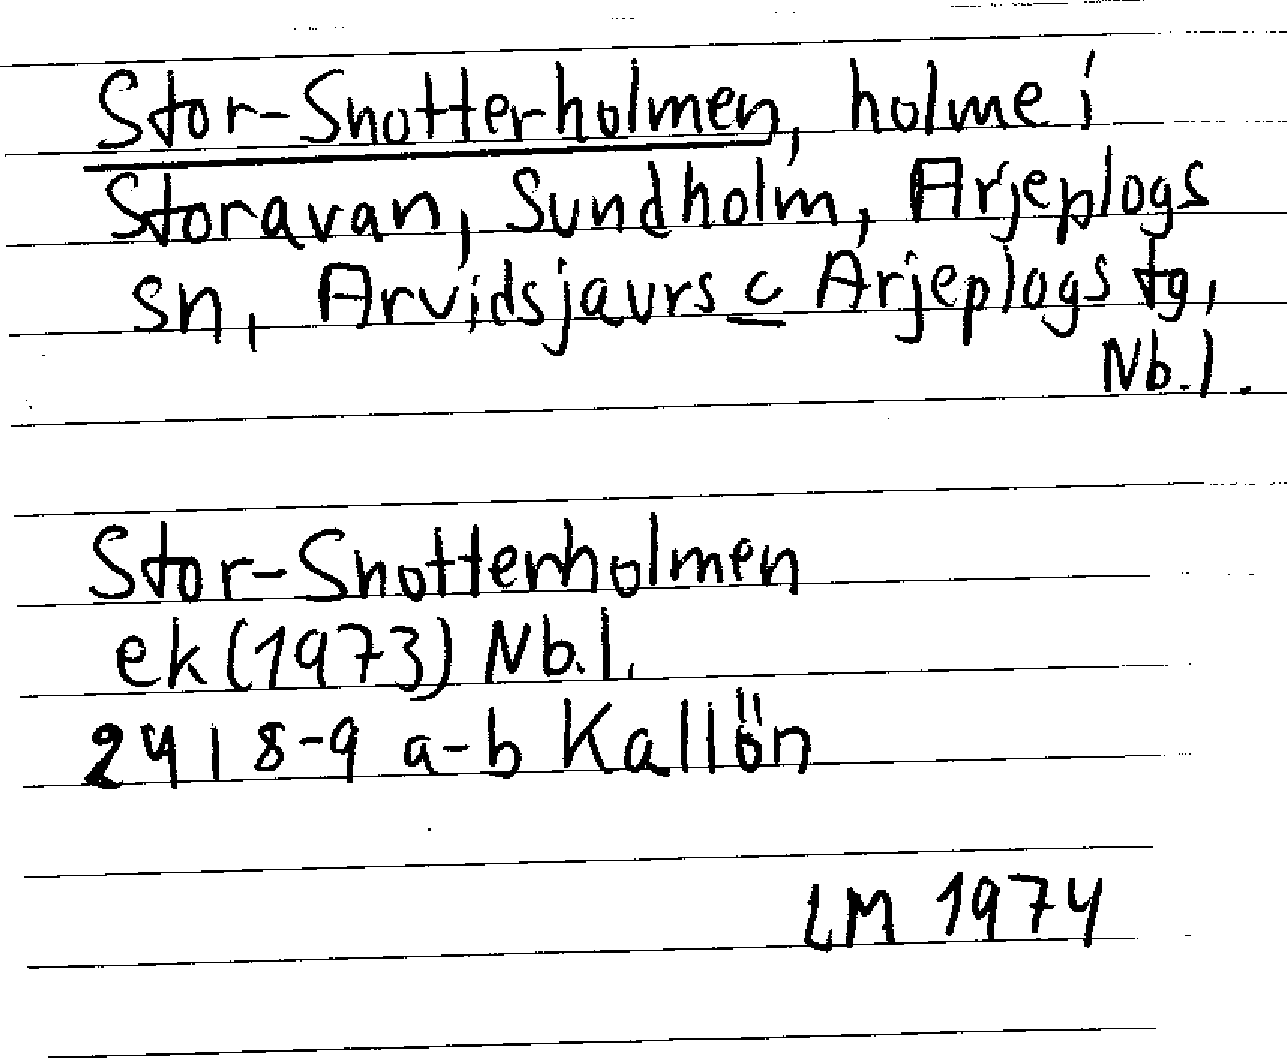 Stor-Snotterholmen, holme i
Storavan, Sundholm, Arjeplogs
sn, Arvidsjaurs c Arjeplogs tg,
Nb.l.
Stor-Snotterholmen
ek (1973) Nb.l.
24 I 8-9 a-b Kallön
LM 1974